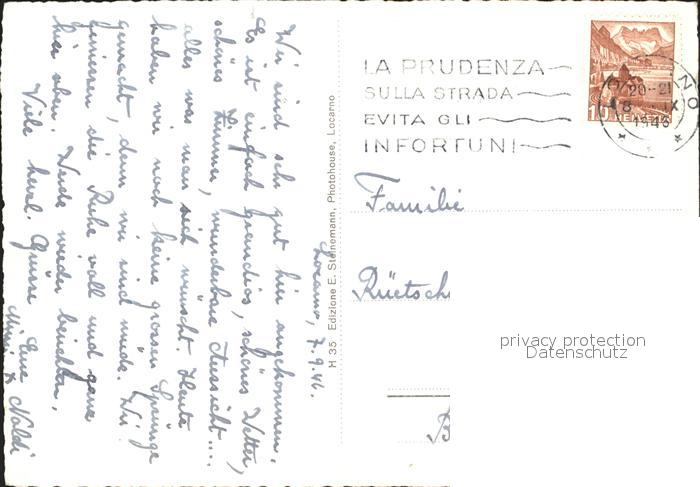 Locarno, 7.9.46.
Wir sind sehr gut hier angekommen.
Es ist einfach grandios, schönes Wetter,
schönes Zimmer, wunderbare Aussicht....
alles was man sich wünscht. Heute
haben wir noch keine grossen Sprünge
gemacht, denn wir sind müde. Wir
geniessen die Ruhe voll und ganz
hier oben. Werde wieder berichten,
Viele herzl. Grüsse
Eure
H 35 Edizione E. Steinemann, Photohouse, Locarno
LA PRUDENZA
SULLA STRADA
EVITA GLI
INFORTUNI
20-21
8 IX
1946
10 HELVETIA
Familie
Rüetsch
B
privacy protection
Datenschutz